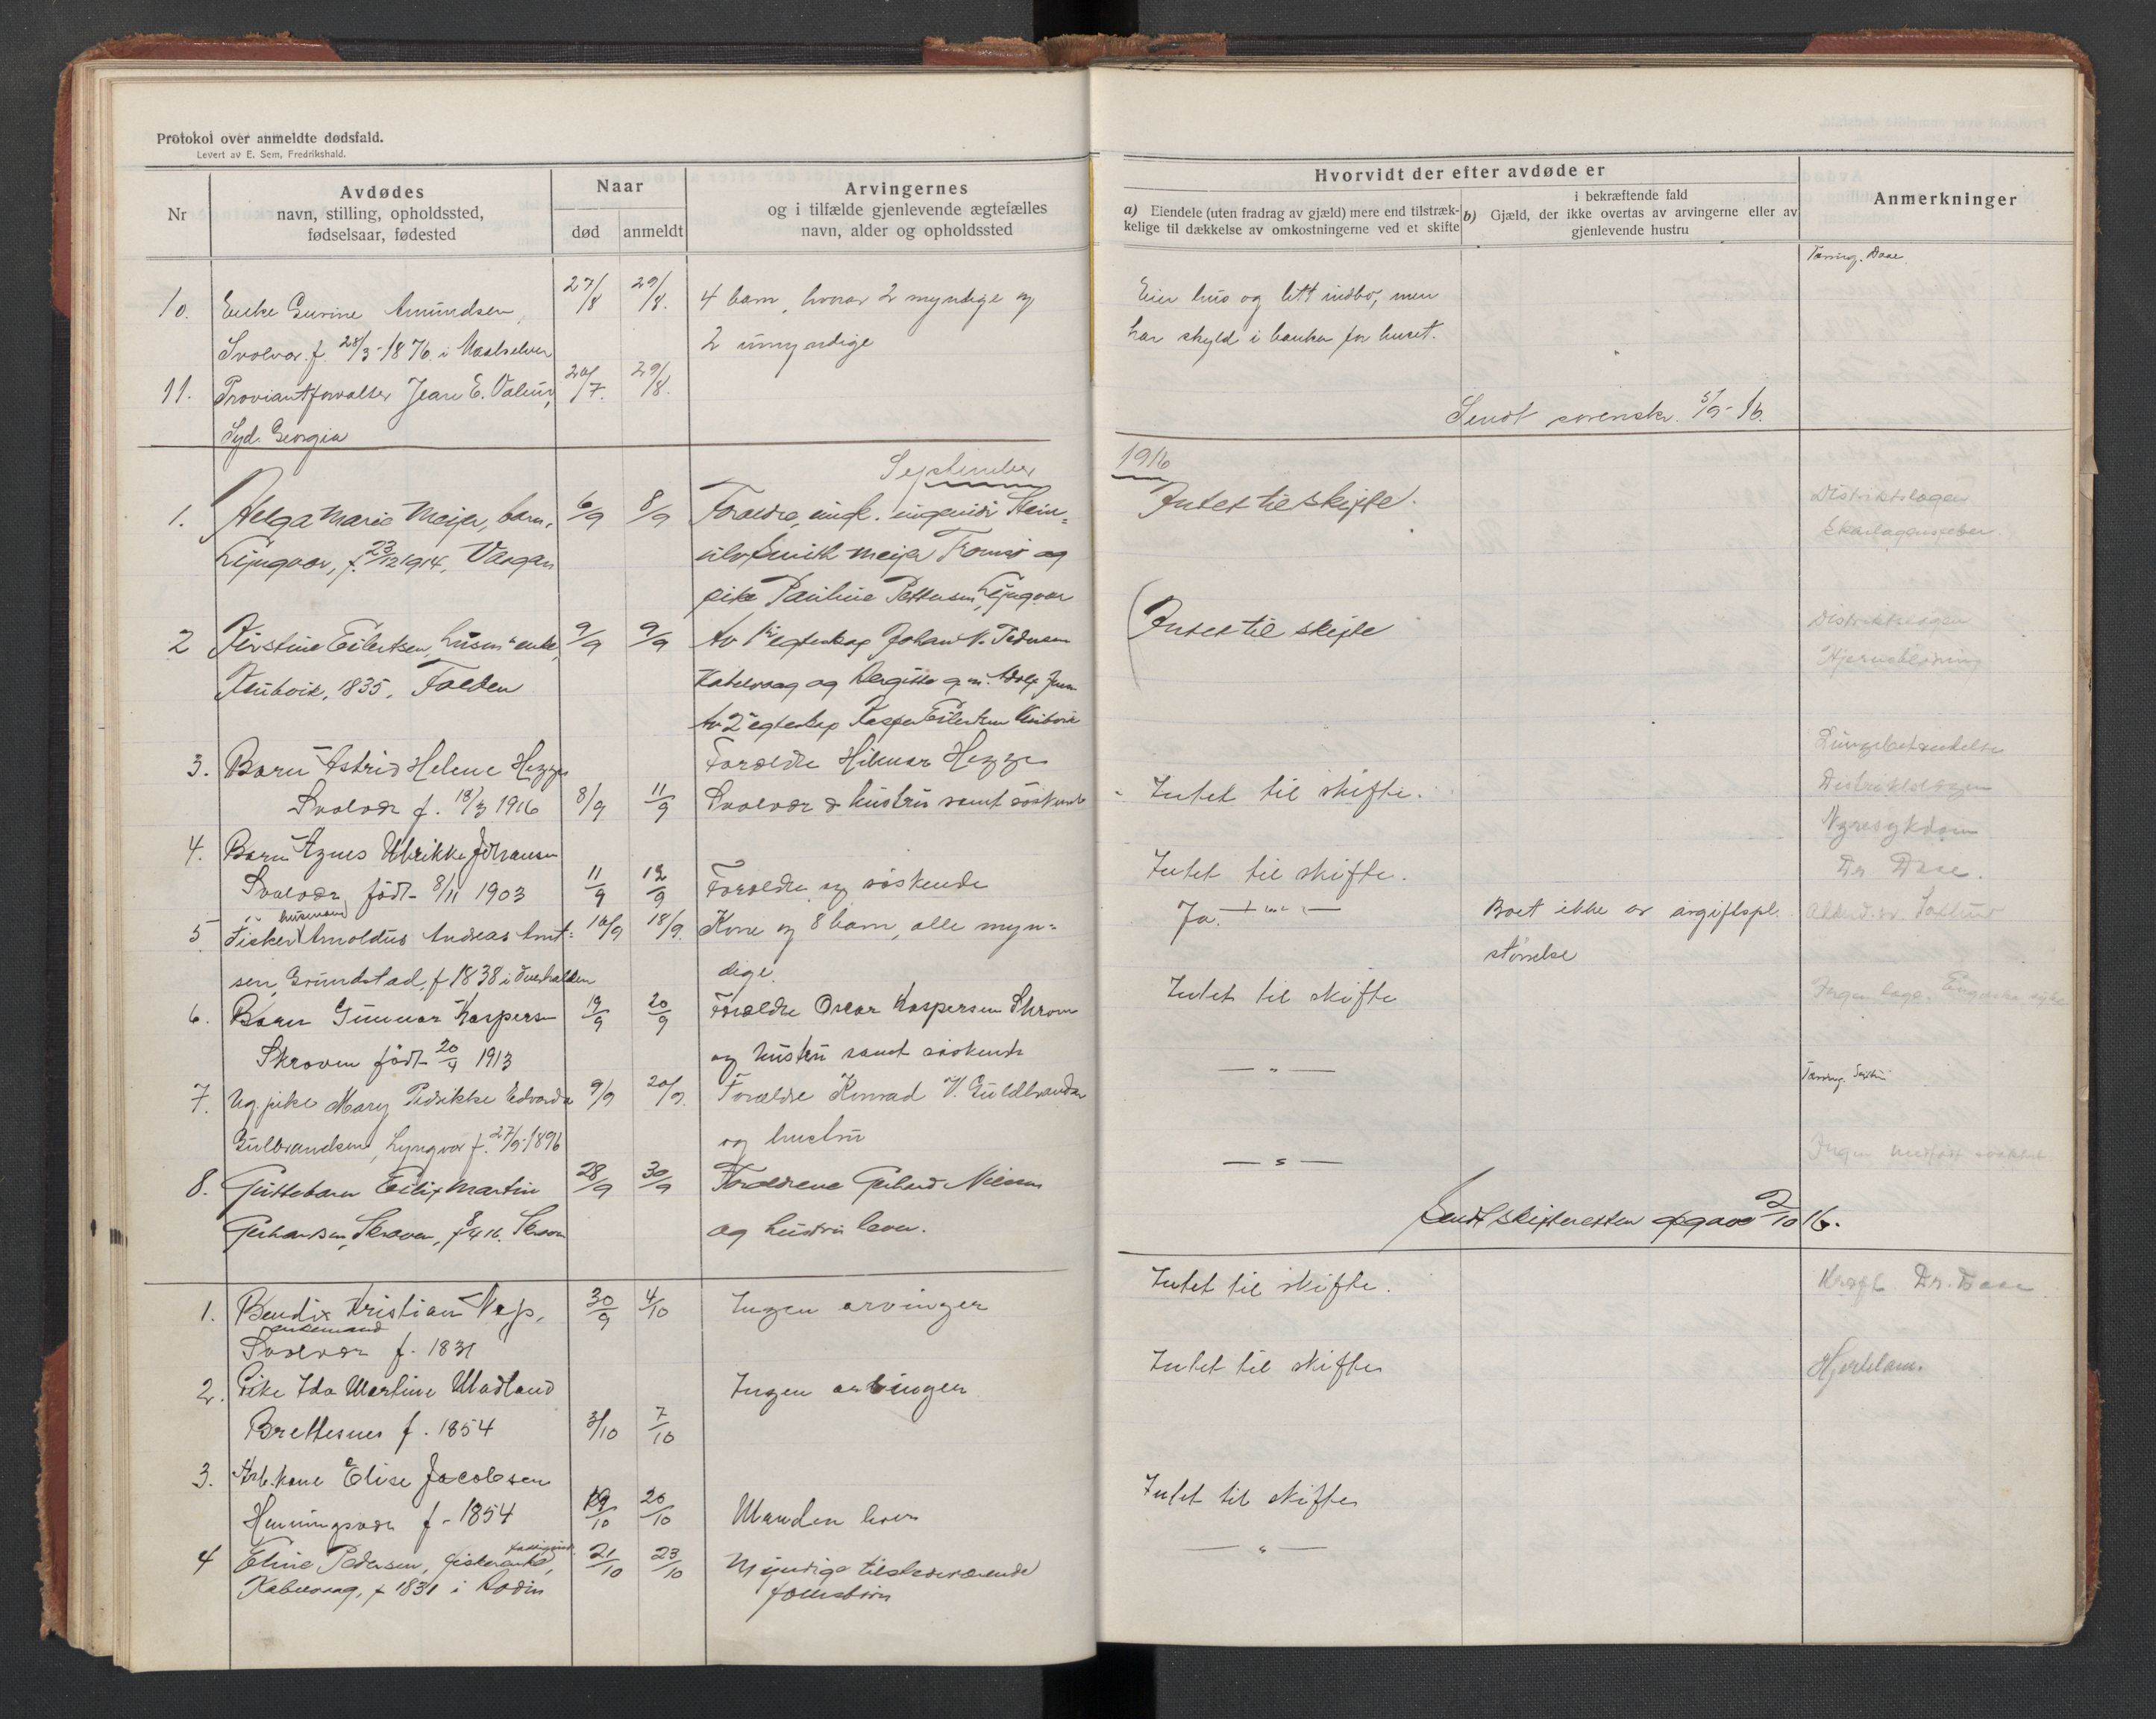 Protokol over anmeldte dødsfald.
Levert av E. Sem, Fredrikshald.
Nr
Avdødes
navn, stilling, opholdssted,
fødselsaar, fødested
Naar
død
anmeldt
Arvingernes
og i tilfælde gjenlevende ægtefælles
navn, alder og opholdssted
Hvorvidt der efter avdøde er
a) Eiendele (uten fradrag av gjæld) mere end tilstræk-
kelige til dækkelse av omkostningerne ved et skifte
i bekræftende fald
b) Gjæld, der ikke overtas av arvingerne eller av
gjenlevende hustru
Anmerkninger
Tæring. Daae.
10. Enke Gurine Amundsen, 27/8 29/8. 4 barn, hvorav 2 myndige og Eier hus og litt indbo, men
Svolvær f. 28/3-1876 i Maalselven 2 umyndige har skyld i banken for huset.
11. Proviantforvalter Jean E. 20/7. 29/8.
Syd. Georgia
Sendt sorenskr. 5/9-16.
September 1916
1. Helga Marie Meijer, barn, 6/9 8/9 Forældre, ungk. ingeniør Stein= Intet til skifte. Distriktslægen
Lyngvær, f. 23/12 1914, Vaagan Meijer Tromsø og Skarlagensfeber
pike Pauline Pettersen, Lyngvær
2 Kirstine Eilertsen, husm enke, 9/9 9/9 Av 1ste egteskap Johan N. Pedersen Intet til skifte Distriktslægen
1835, Folden Kabelvaag og g. m. Adolf Hjerneblødning
Av 2 egteskap Kasper Eilertsen
3. Barn Astrid Helene Hegge Forældre Hilmar Hegge Lungebetændelse
Svolvær f. 18/3 1916 8/9 11/9 Svolvær & hustru samt søskende Intet til skifte. Distriktslægen
4. Barn Agnes Ulrikke Johansen Nyresykdom
Svolvær, født 8/11 1903 11/9 12/9 Forældre og søskende Intet til skifte. Dr Daae.
husmand
5 Fisker Arnoldus Andreas Arnt= 16/9 18/9. Kone og 8 barn, alle myn= Ja. Boet ikke av avgiftspl.
sen, Grundstad, f 1838 i Overhalden dige. størrelse
6. Barn Gunnar Kaspersen 19/9 20/9 Forældre Oscar Kaspersen Skroven Intet til skifte Ingen læge.
Skroven født 20/9 1913 og hustru samt søskende
7. Ug. pike Mary Petrikke Edvarda 9/9 20/9. Forældre Konrad V. Guldbrandsen — " — Tæring.
Gulbrandsen, Lyngvær f. 27/9-1896 og hustru
8. Guttebarn Eilif Martin 28/9 30/9 Forældrene Gerhard Nilsen — " — Ingen
Gerhardsen, Skroven, f 8/4 16. Skroven og hustru lever.
Sendt skifteretten opgave 2/10 16.
1. Bendix Kristian 30/9 4/10 Ingen arvinger Intet til skifte. Kræft Dr. Daae
enkemand
Svolvær f. 1831
2. Pike Ida Martine Madland Ingen arvinger Intet til skifte Hjertelam.
Brettesnes f. 1854 3/10 7/10
3. Arb. kone Elise Jacobsen
Henningsvær f. 1854 19/10 20/10 Manden lever Intet til skifte
4 Eline Pedersen, fiskerenke, 21/10 23/10 Myndige tilstedeværende — " —
Kabelvaag, f 1831 i Bodin fællesbørn